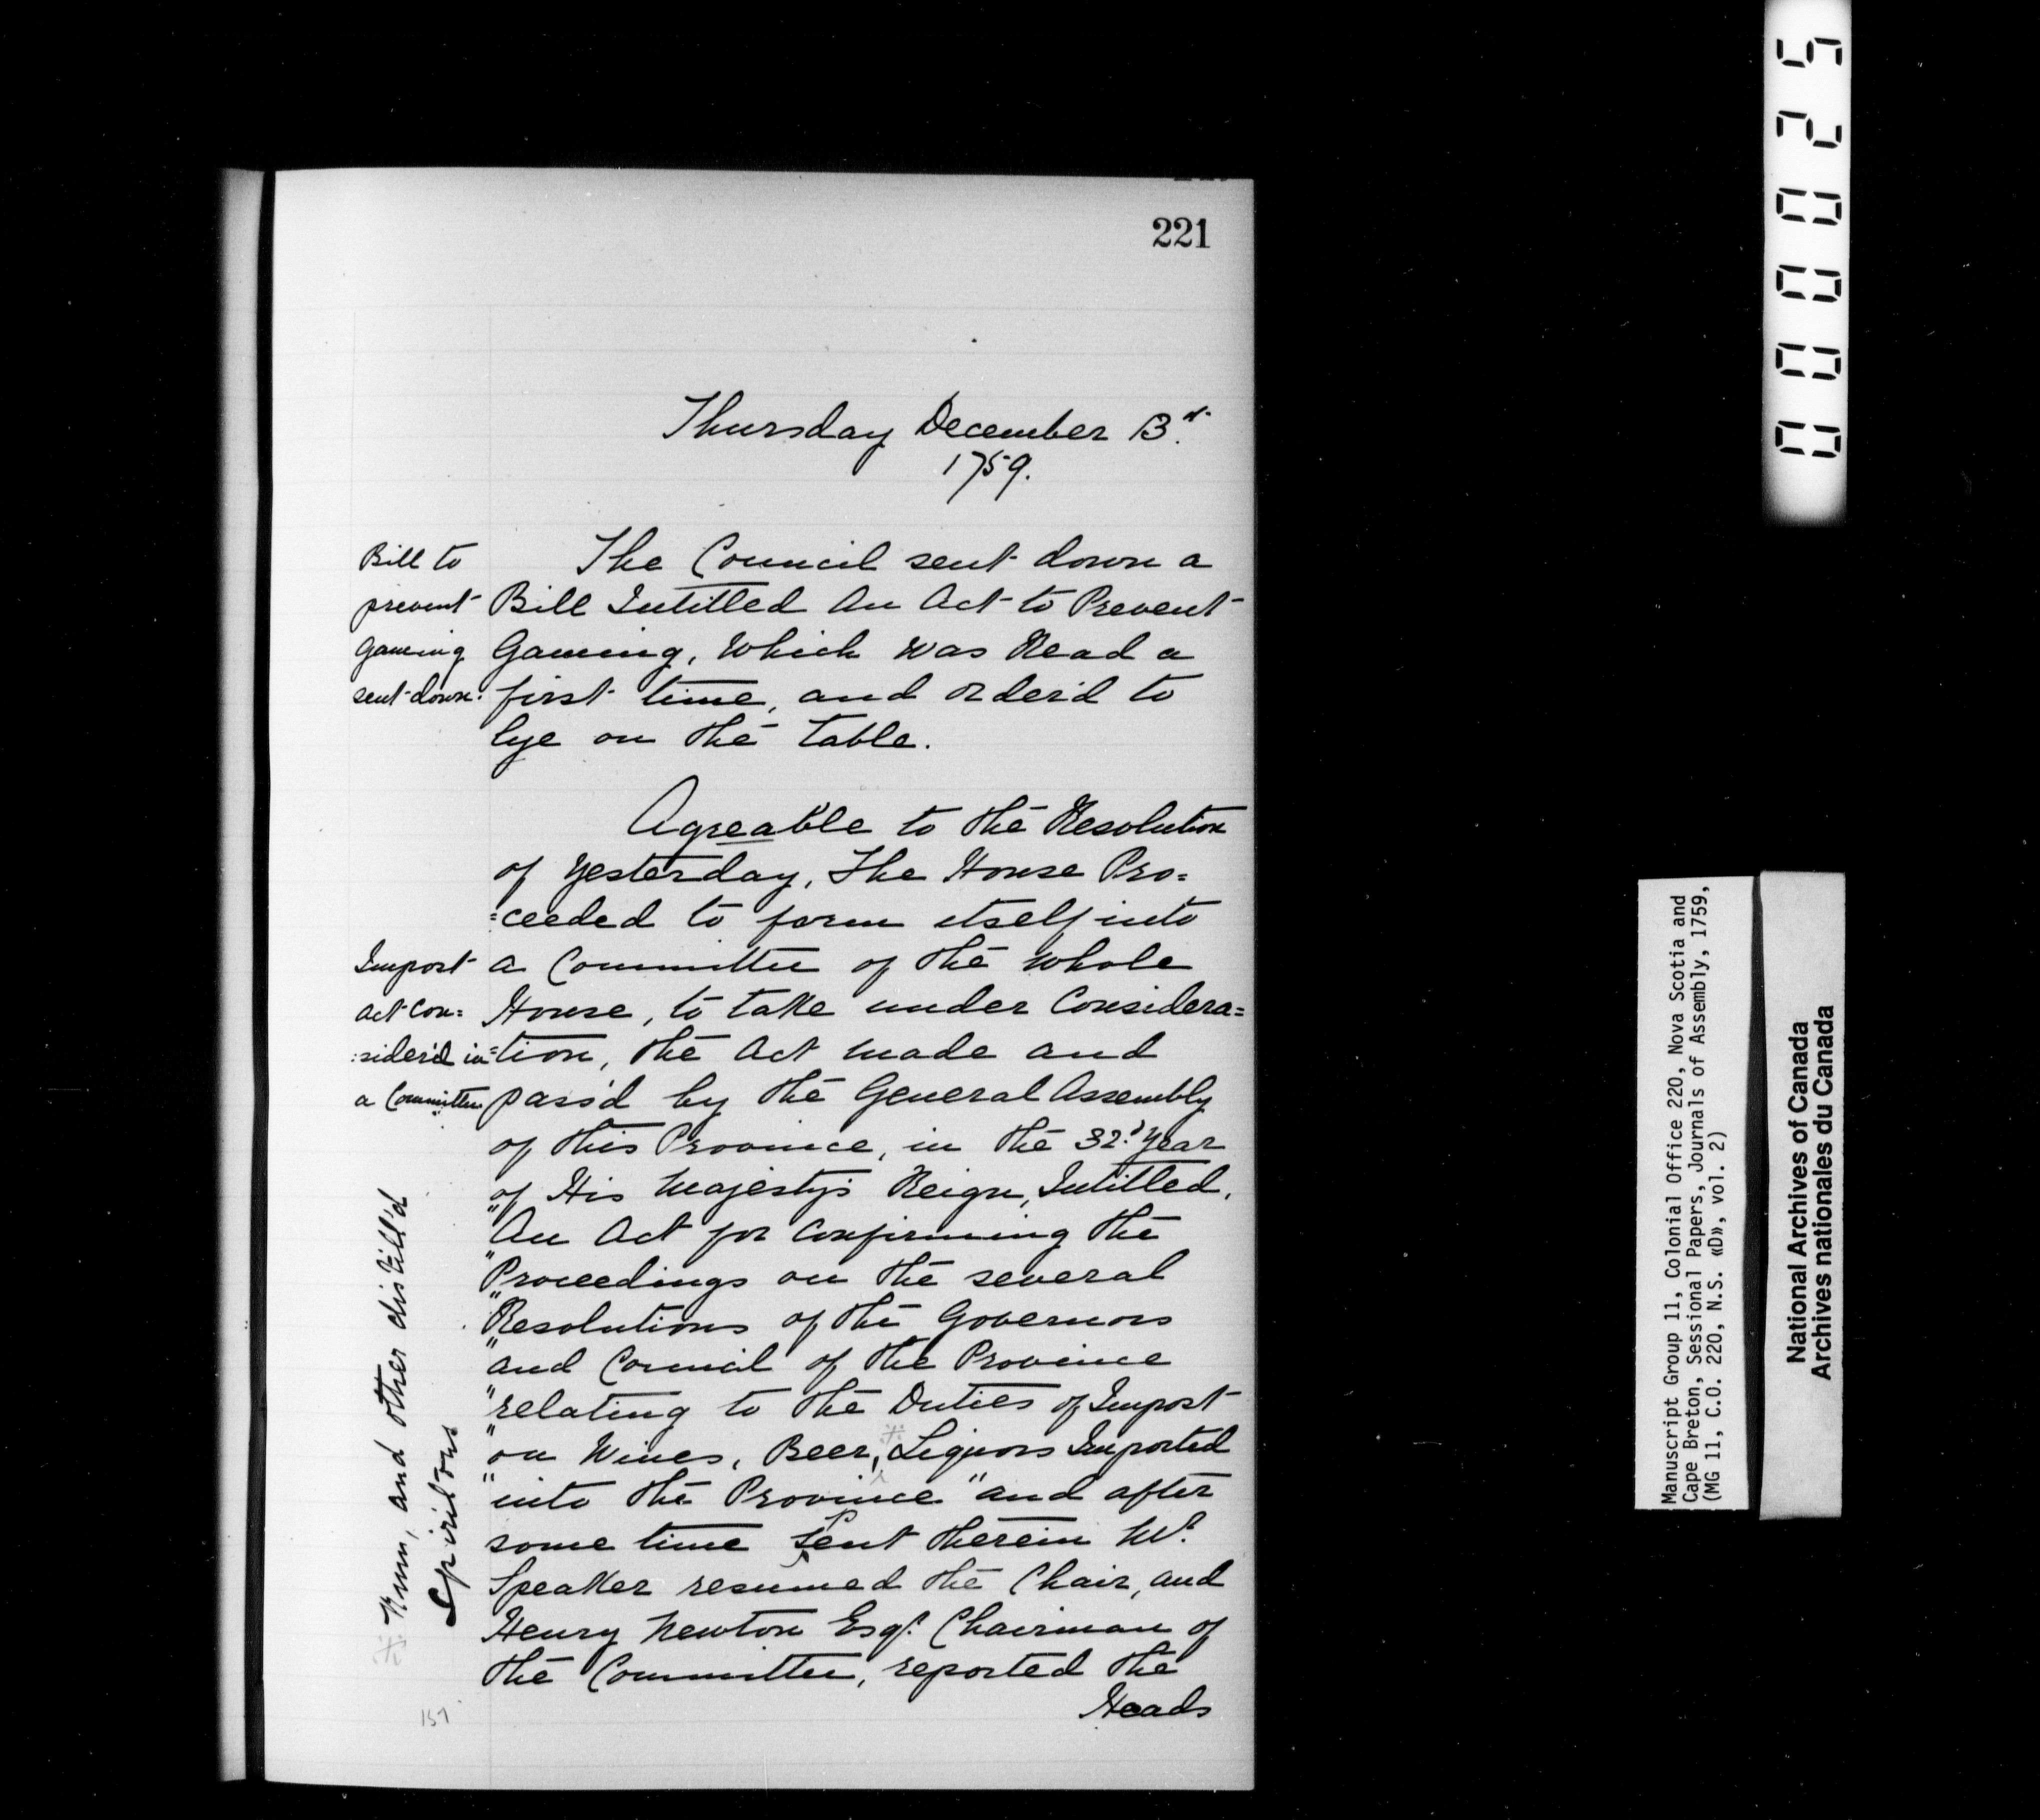 221
Thursday December 13th
1759.
Bill to
prevent
gaming
sent down:
The Council sent down a
Bill Intitled An Act to Prevent
Gaming, which was Read a
first time, and order'd to
lye on the table.
Agreable to the Resolution
of yesterday, The House Pro=
=ceeded to form itself into
Impost
act con:
:sider'd in
a Committee
a Committee of the whole
House, to take under Considera=
=tion, the Act made and
pass'd by the General Assembly
of this Province, in the 32d year
of His Majesty's Reign, Intitled,
"An Act for Confirming the
"Proceedings on the several
"Resolutions of the Governors
"and Council of the Province
"relating to the Duties of Impost
"on Wines, Beer, ※ Liquors Imported
"into the Province" and after
some time spent therein Mr.
Speaker resumed the Chair, and
Henry Newton Esqr. Chairman of
the Committee, reported the
Heads
※ Rum, and other distill'd
Spiritous
157
000025
Manuscript Group 11, Colonial Office 220, Nova Scotia and
Cape Breton, Sessional Papers, Journals of Assembly, 1759,
(MG 11, C.O. 220, N.S. «D», vol. 2)
National Archives of Canada
Archives nationales du Canada